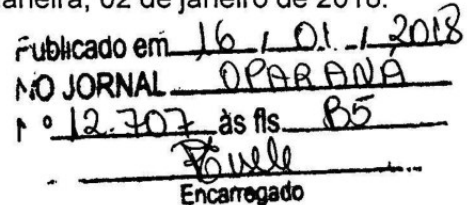 aneira, 02 de janeiro de 2018.
Publicado em 16 / 01 / 2018
NO JORNAL OPARANÁ
Nº 12.707 às fls. B5
Encarregado